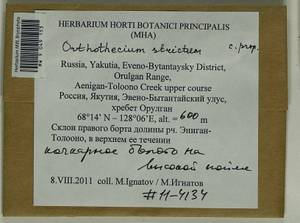 HERBARIUM HORTI BOTANICI PRINCIPALIS
(MHA)
Orthothecium strictum c. prop.
Russia, Yakutia, Eveno-Bytantaysky District,
Orulgan Range,
Aenigan-Toloono Creek upper course
Россия, Якутия, Эвено-Бытантайский улус,
хребет Орулган
68°14' N – 128°06'E, alt. = 600 m
Склон правого борта долины рч. Эниган-
Толооно, в верхнем ее течении
кочкарное болото на
высокой пойме
8.VIII.2011 coll. M.Ignatov / М.Игнатов
#11-4134